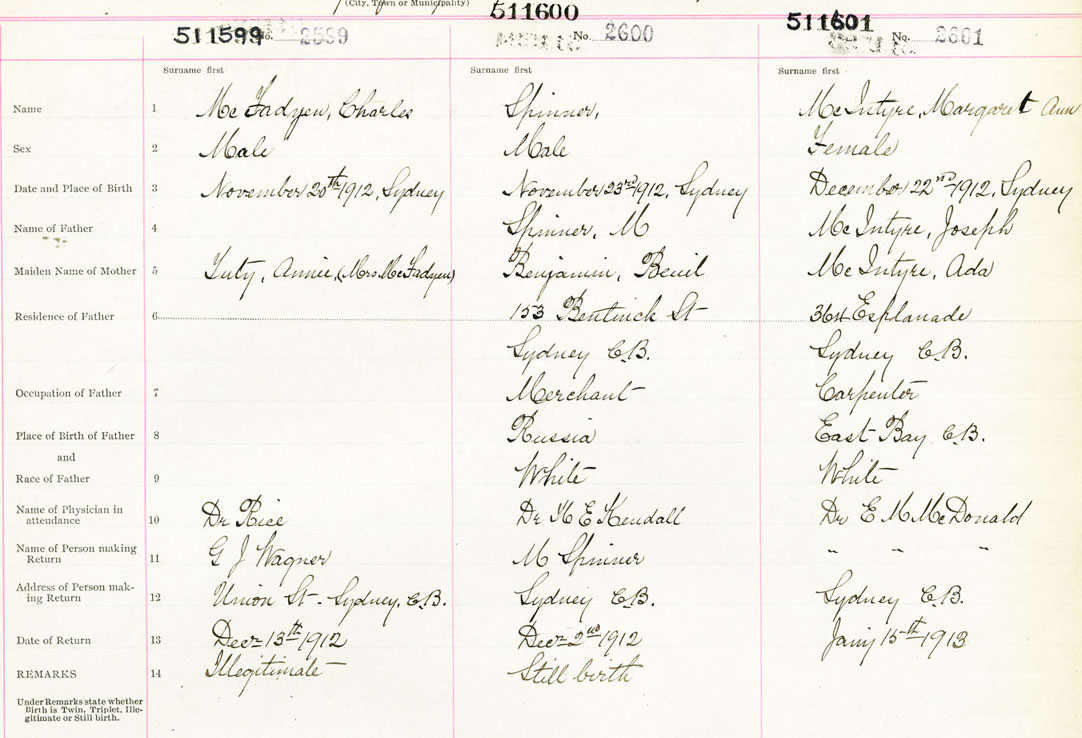 (City, Town or Municipality)
511599 No. 2599 511600 No. 2600 511601 No. 2601
Surname first Surname first Surname first
Name 1 McFadyen, Charles Spinner, McIntyre, Margaret Ann
Sex 2 Male Male Female
Date and Place of Birth 3 November 20th 1912, Sydney November 23rd 1912, Sydney December 22nd 1912, Sydney
Name of Father 4 Spinner, M McIntyre, Joseph
Maiden Name of Mother 5 Annie, (Mrs McFadyen) Benjamin, McIntyre, Ada
Residence of Father 6 153 Bentinck St 364 Esplanade
Sydney C.B. Sydney C.B.
Occupation of Father 7 Merchant Carpenter
Place of Birth of Father 8 Russia East Bay C.B.
and
Race of Father 9 White White
Name of Physician in
attendance 10 Dr Rice Dr K E Kendall Dr E M McDonald
Name of Person making
Return 11 G J Wagner M Spinner " " "
Address of Person mak-
ing Return 12 Union St - Sydney, C.B. Sydney C.B. Sydney C.B.
Date of Return 13 Decr 13th 1912 Decr 2nd 1912 Jany 15th 1913
REMARKS 14 Illegitimate Still birth
Under Remarks state whether
Birth is Twin, Triplet, Ille-
gitimate or Still birth.